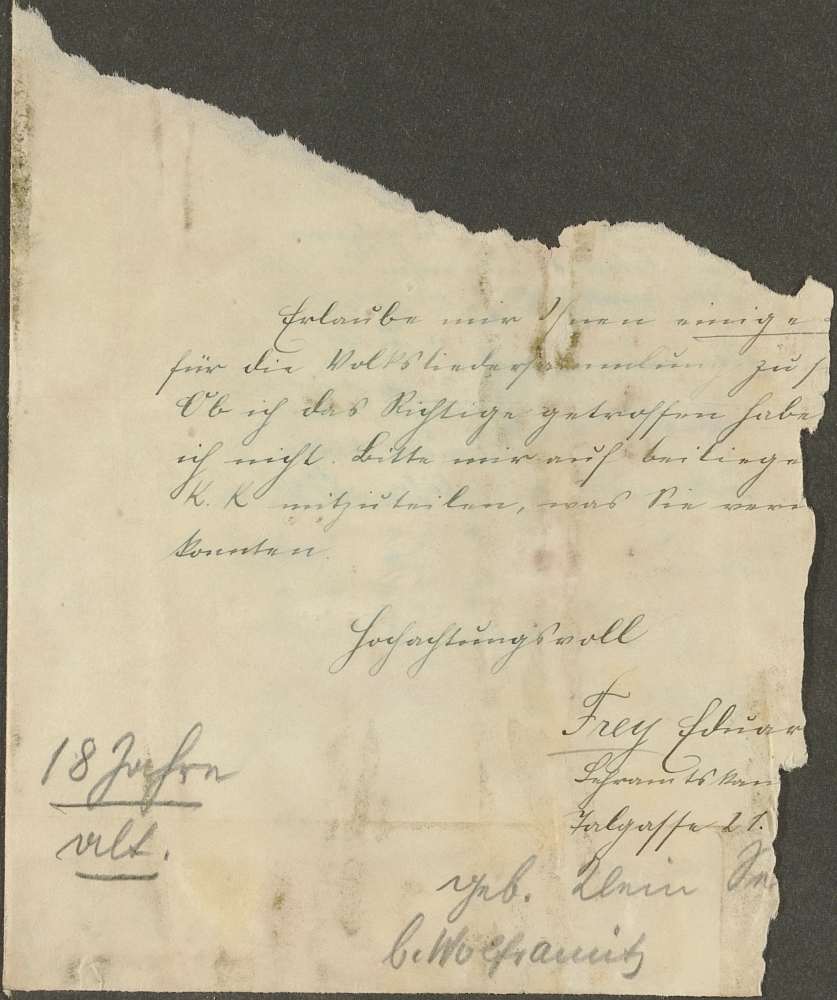 Erlaube mir Ihnen einige
für die Volksliedersammlung zu
Ob ich das Richtige getroffen habe
ich nicht. Bitte mir auf beiliege
K. K mitzuteilen, was Sie
konnten.
Hochachtungsvoll
Frey Eduar
Lehramtskan
Talgasse 21.
18 Jahre
alt.
geb. Klein Se
b. Wolframitz